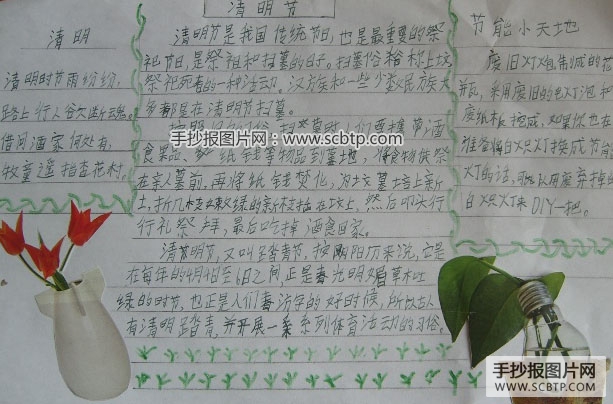 清明节
清明
清明时节雨纷纷,
路上行人欲断魂。
借问酒家何处有,
牧童遥指杏花村。
清明节是我国传统节日,也是最重要的祭
祀节日,是祭祖和扫墓的日子。扫墓俗称上坟,
祭祀死者的一种活动。汉族和一些少数民族大
多都是在清明节扫墓。
按照
食果品、纸钱等物品到墓地,将食物供祭
在亲人墓前,再将纸钱焚化,为坟墓培上新
土,折几枝嫩绿的新枝插在坟上,然后叩头行
行礼祭拜,最后吃掉酒食回家。
清明节,又叫踏青节,按阳历来说,它是
在每年的4月4日至6日之间,正是春光明媚草木吐
绿的时节,也正是人们春游的好时候,所以古人
有清明踏青,并开展一系列体育活动的习俗。
节能小天地
废旧灯泡制成的花
瓶,采用废旧的电灯泡和
废纸板换成,如果你也在
准备将白炽灯换成节能
灯的话,可以用废弃掉的
白炽灯来DIY一把。
手抄报图片网
www.scbtp.com
手抄报图片网
WWW.SCBTP.COM